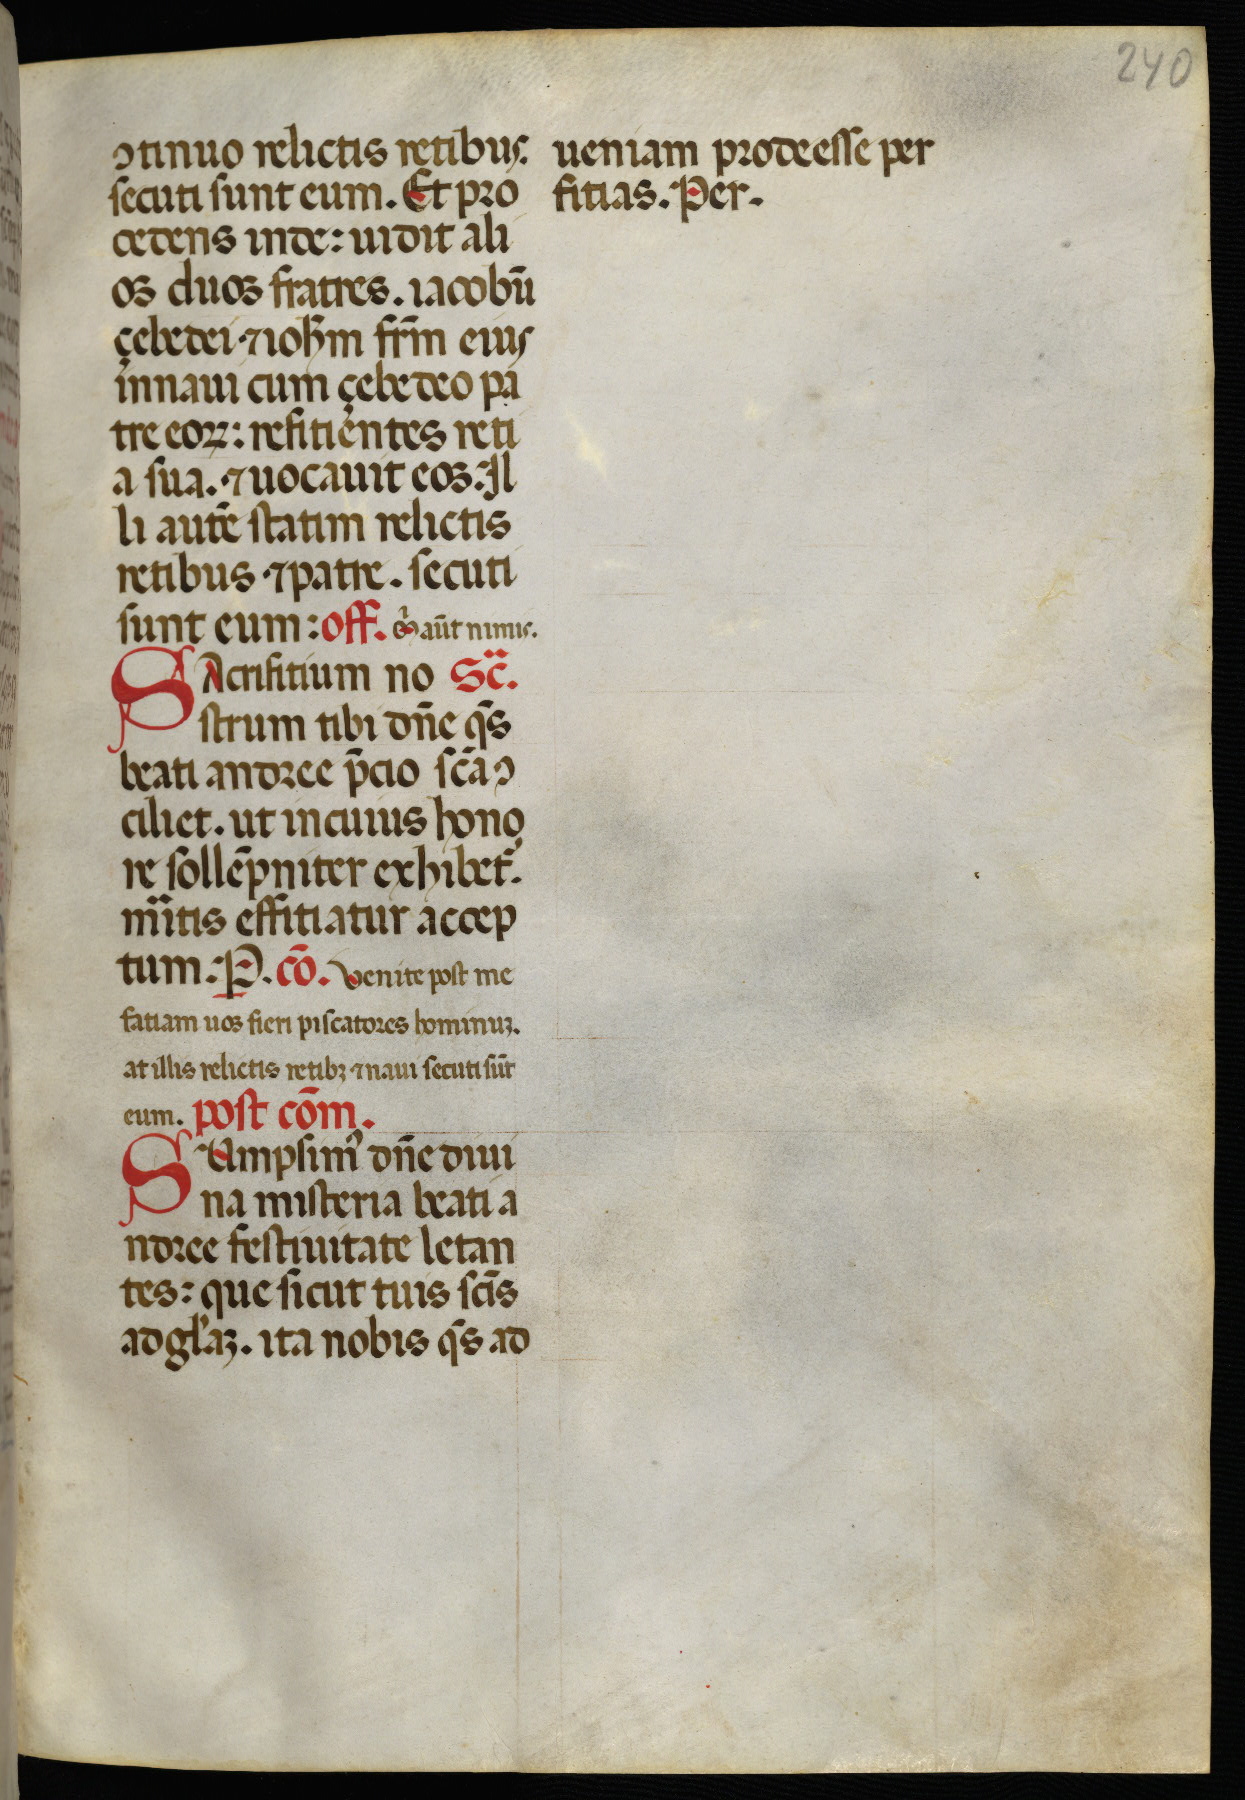 240
ꝯtinuo relictis retibus.
secuti sunt eum. Et pro
cedens inde: uidit ali
os duos fratres. iacobū
çebedei ⁊ ioh̄m fr̄m eius
in naui cum çebedeo pa
tre eoꝝ: refitientes reti
a sua. ⁊ uocauit eos. Il
li autē statim relictis
retibus ⁊ patre. secuti
sunt eum: off. aūt nimis.
SAcrifitium no Sc̄.
strum tibi dn̄e qs̄
beati andree p̄cio sc̄a ꝯ
ciliet. ut in cuius hono
re sollēpniter exhibet᷑.
m̄itis effitiatur accep
tum. P. cō. Venite post me
fatiam uos fieri piscatores hominuꝫ.
at illis relictis retibꝫ ⁊ naui secuti sūt
eum. post cōm.
SUmpsimꝰ dn̄e diui
na misteria beati a
ndree festiuitate letan
tes: que sicut tuis sc̄is
ad gl'aꝫ. ita nobis qs̄ ad
ueniam prodeesse per
fitias. Per.